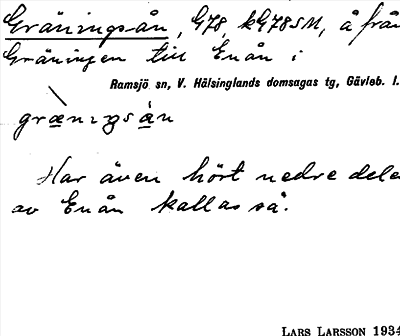 Gräningsån, G78, kG78SM, å från
Gräningen till Enån i
Ramsjö sn, V. Hälsinglands domsagas tg, Gävleb. l.
græni̯gsån
Har även hört nedre dele
av Enån kallas så.
LARS LARSSON 1934